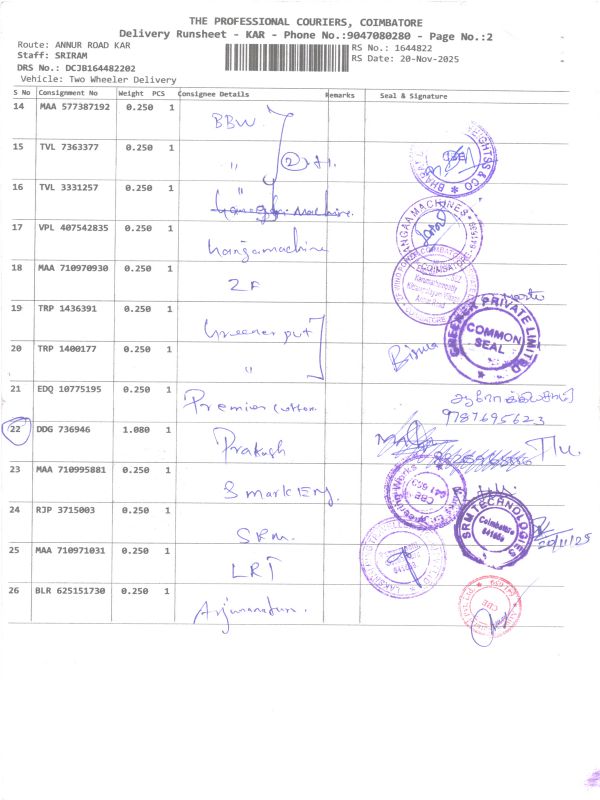 THE PROFESSIONAL COURIERS, COIMBATORE
Delivery Runsheet - KAR - Phone No.:9047080280 - Page No.:2
Route: ANNUR ROAD KAR
RS No.: 1644822
Staff: SRIRAM
RS Date: 20-Nov-2025
DRS No.: DCJB164482202
Vehicle: Two Wheeler Delivery
S No Consignment No Weight PCS Consignee Details Remarks Seal & Signature
14 MAA 577387192 0.250 1 BBW.
15 TVL 7363377 0.250 1 " 2
16 TVL 3331257 0.250 1 "
17 VPL 407542835 0.250 1 hangamachine
18 MAA 710970930 0.250 1 ZF
19 TRP 1436391 0.250 1
PRIVATE LIMITED
COMMON
SEAL
20 TRP 1400177 0.250 1 "
21 EDQ 10775195 0.250 1 Premier cotton
9787695623
22 DDG 736946 1.080 1 Prakash
23 MAA 710995881 0.250 1 S mark Eng.
24 RJP 3715003 0.250 1 SRM.
SRM TECHNOLOGIES
Coimbatore
20/11/25
25 MAA 710971031 0.250 1 LRT
26 BLR 625151730 0.250 1